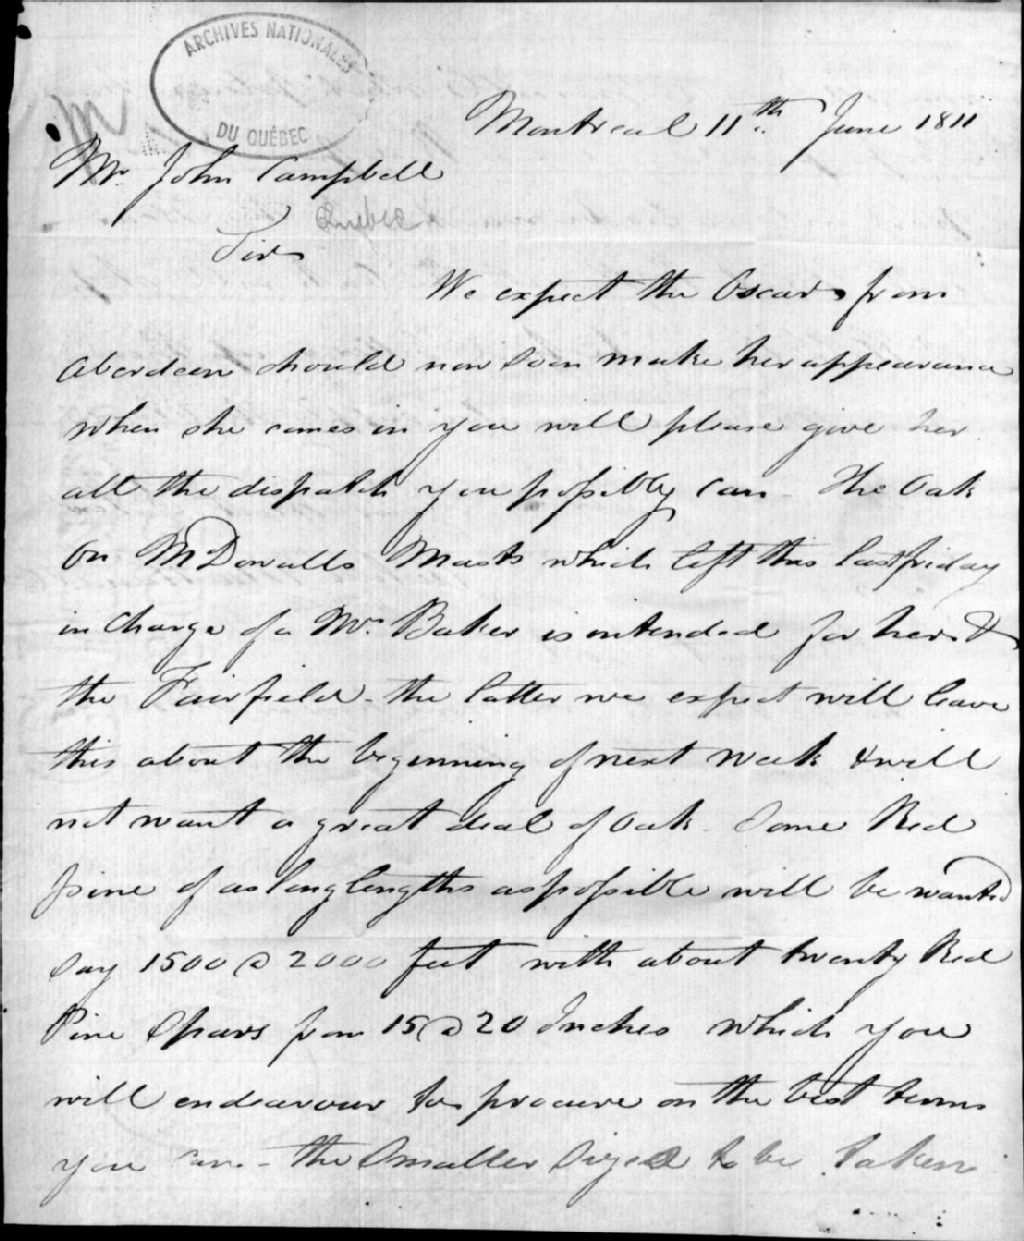 ARCHIVES NATIONALES
DU QUÉBEC
Montreal 11th June 1811
Mr John Campbell
Quebec
Sir
We expect the Oscar from
Aberdeen should now soon make her appearance
when she comes in you will please give her
all the dispatch you possibly can - The Oak
on McDonalls Masts which left this last friday
in charge of a Mr Baker is intended for her &
the Fairfield - the latter we expect will leave
this about the beginning of next week & will
not want a great deal of Oak. Some Red
pine of as long lengths as possible will be wanted
say 1500 @ 2000 feet with about twenty Red
Pine Spars from 15 @ 20 Inches which you
will endeavour to procure on the best terms
you can - the Smaller Sizes to be taken